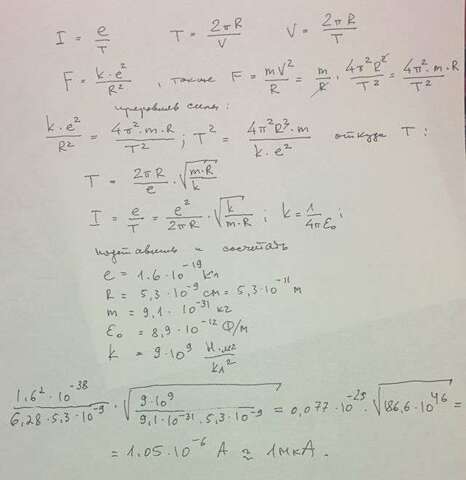 I = e/T    T = 2πR/V    V = 2πR/T
F = k·e²/R² , также F = mV²/R = m/R · 4π²R²/T² = 4π²·m·R/T²
k·e²/R² = 4π²·m·R/T² ; T² = 4π²R³·m/k·e² откуда T :
T = 2πR/e · √(m·R/k)
I = e/T = e²/2πR · √(k/m·R) ; k = 1/4πε₀ ;
подставить и сосчитать
e = 1.6·10⁻¹⁹ Кл
R = 5,3·10⁻⁹ см = 5,3·10⁻¹¹ м
m = 9,1·10⁻³¹ кг
ε₀ = 8,9·10⁻¹² Ф/м
k = 9·10⁹ Н·м²/Кл²
1,6²·10⁻³⁸/6,28·5,3·10⁻⁹ · √(9·10⁹/9,1·10⁻³¹·5,3·10⁻⁹) = 0,077·10⁻²⁹·√(186,6·10⁴⁶) =
= 1.05·10⁻⁶ А ≈ 1мкА.